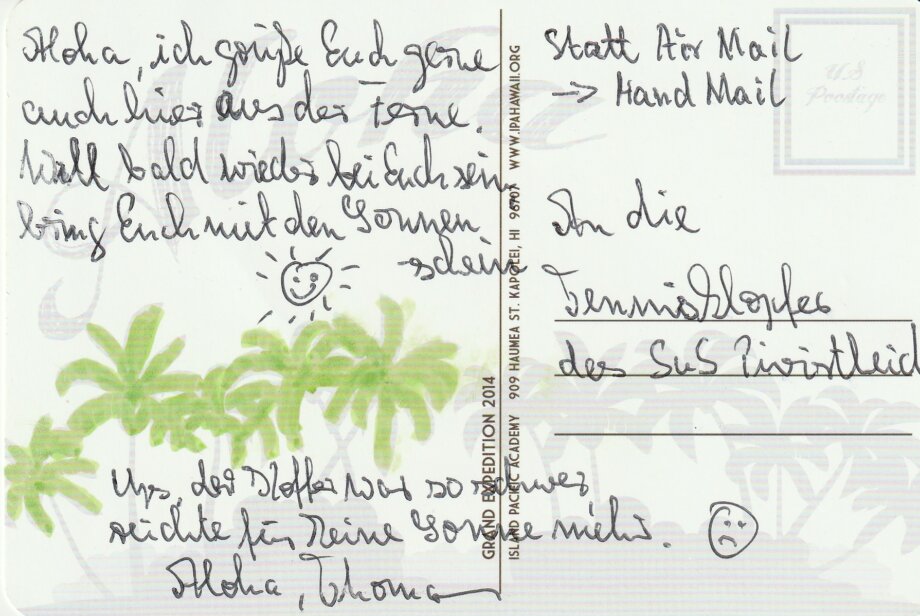 Aloha, ich grüße Euch gerne
auch hier aus der Ferne.
Will bald wieder bei Euch sein
bring Euch mit den Sonnen
-schein
Ups, der Koffer war so schwer
reichte für keine Sonne mehr.
Aloha, Thomas
GRAND EXPEDITION 2014
ISLAND PACIFIC ACADEMY 909 HAUMEA ST. KAPOLEI, HI 96707 WWW.IPAHAWAII.ORG
Statt Air Mail
→ Hand Mail
US
Postage
An die
Tennisklopfer
der SuS
Aloha